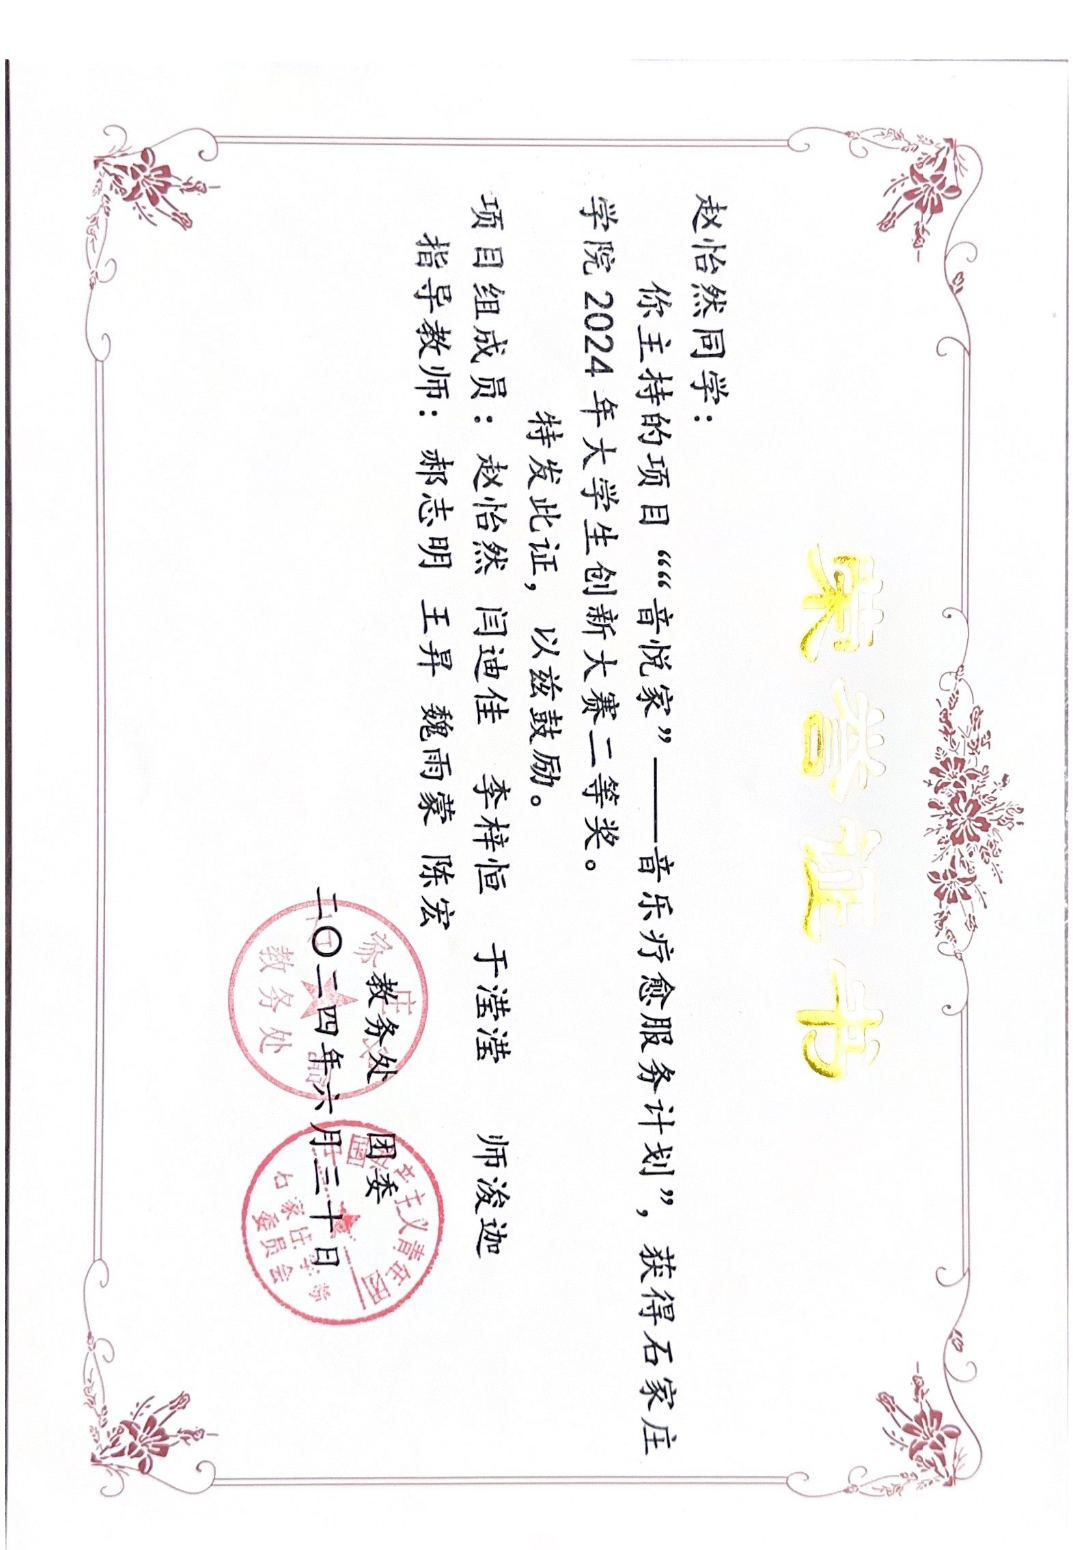 荣誉证书
赵怡然同学：
你主持的项目““音悦家”——音乐疗愈服务计划”，获得石家庄
学院2024年大学生创新大赛二等奖。
特发此证，以兹鼓励。
项目组成员：赵怡然 闫迪佳 李梓恒 于滢滢 师浚迦
指导教师：郝志明 王昇 魏雨蒙 陈宏
教务处 团委
二〇二四年六月三十日
教务处
石家庄学院
委员会